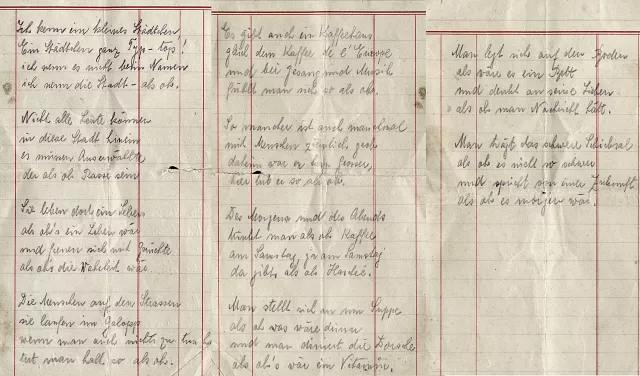 Ich kenn ein kleines Städtchen
Ein Städtchen ganz Tip-top!
ich nenn es nicht beim Namen
ich nenn die Stadt - als ob.
Nicht alle Leute können
in diese Stadt hinein
es müssen Auserwählte
der als ob Rasse sein
Sie leben dort ein Leben
als ob's ein Leben wär
und freuen sich mit Gerüchte
als ob's die Wahrheit wär.
Die Menschen auf den Strassen
sie laufen im Galopp
wenn man auch nichts zu tun hat
tut man halt so als ob.
Es gibt auch ein Kaffeehaus
gleich dem Kaffee de l' Europe
und bei Gesang und Musik
fühlt man sich so als ob.
So mancher ist auch manchmal
mit Menschen ziemlich grob
daheim war er kein Grosser,
hier tut er so als ob.
Des Morgens und des Abends
trinkt man als ob Kaffee
am Samstag, ja am Samstag
da gibts als ob Haché.
Man stellt sich an um Suppe
als ob was wäre drinnen
und man diniert die Dorsche
als ob's wär ein Vitamin.
Man legt sich auf den Boden
als wäre es ein Bett
und denkt an seine Lieben
als ob man Nachricht hätt.
Man trägt das schwere Schicksal
als ob es nicht so schwer
und spricht von einer Zukunft
als ob es morgen wär.